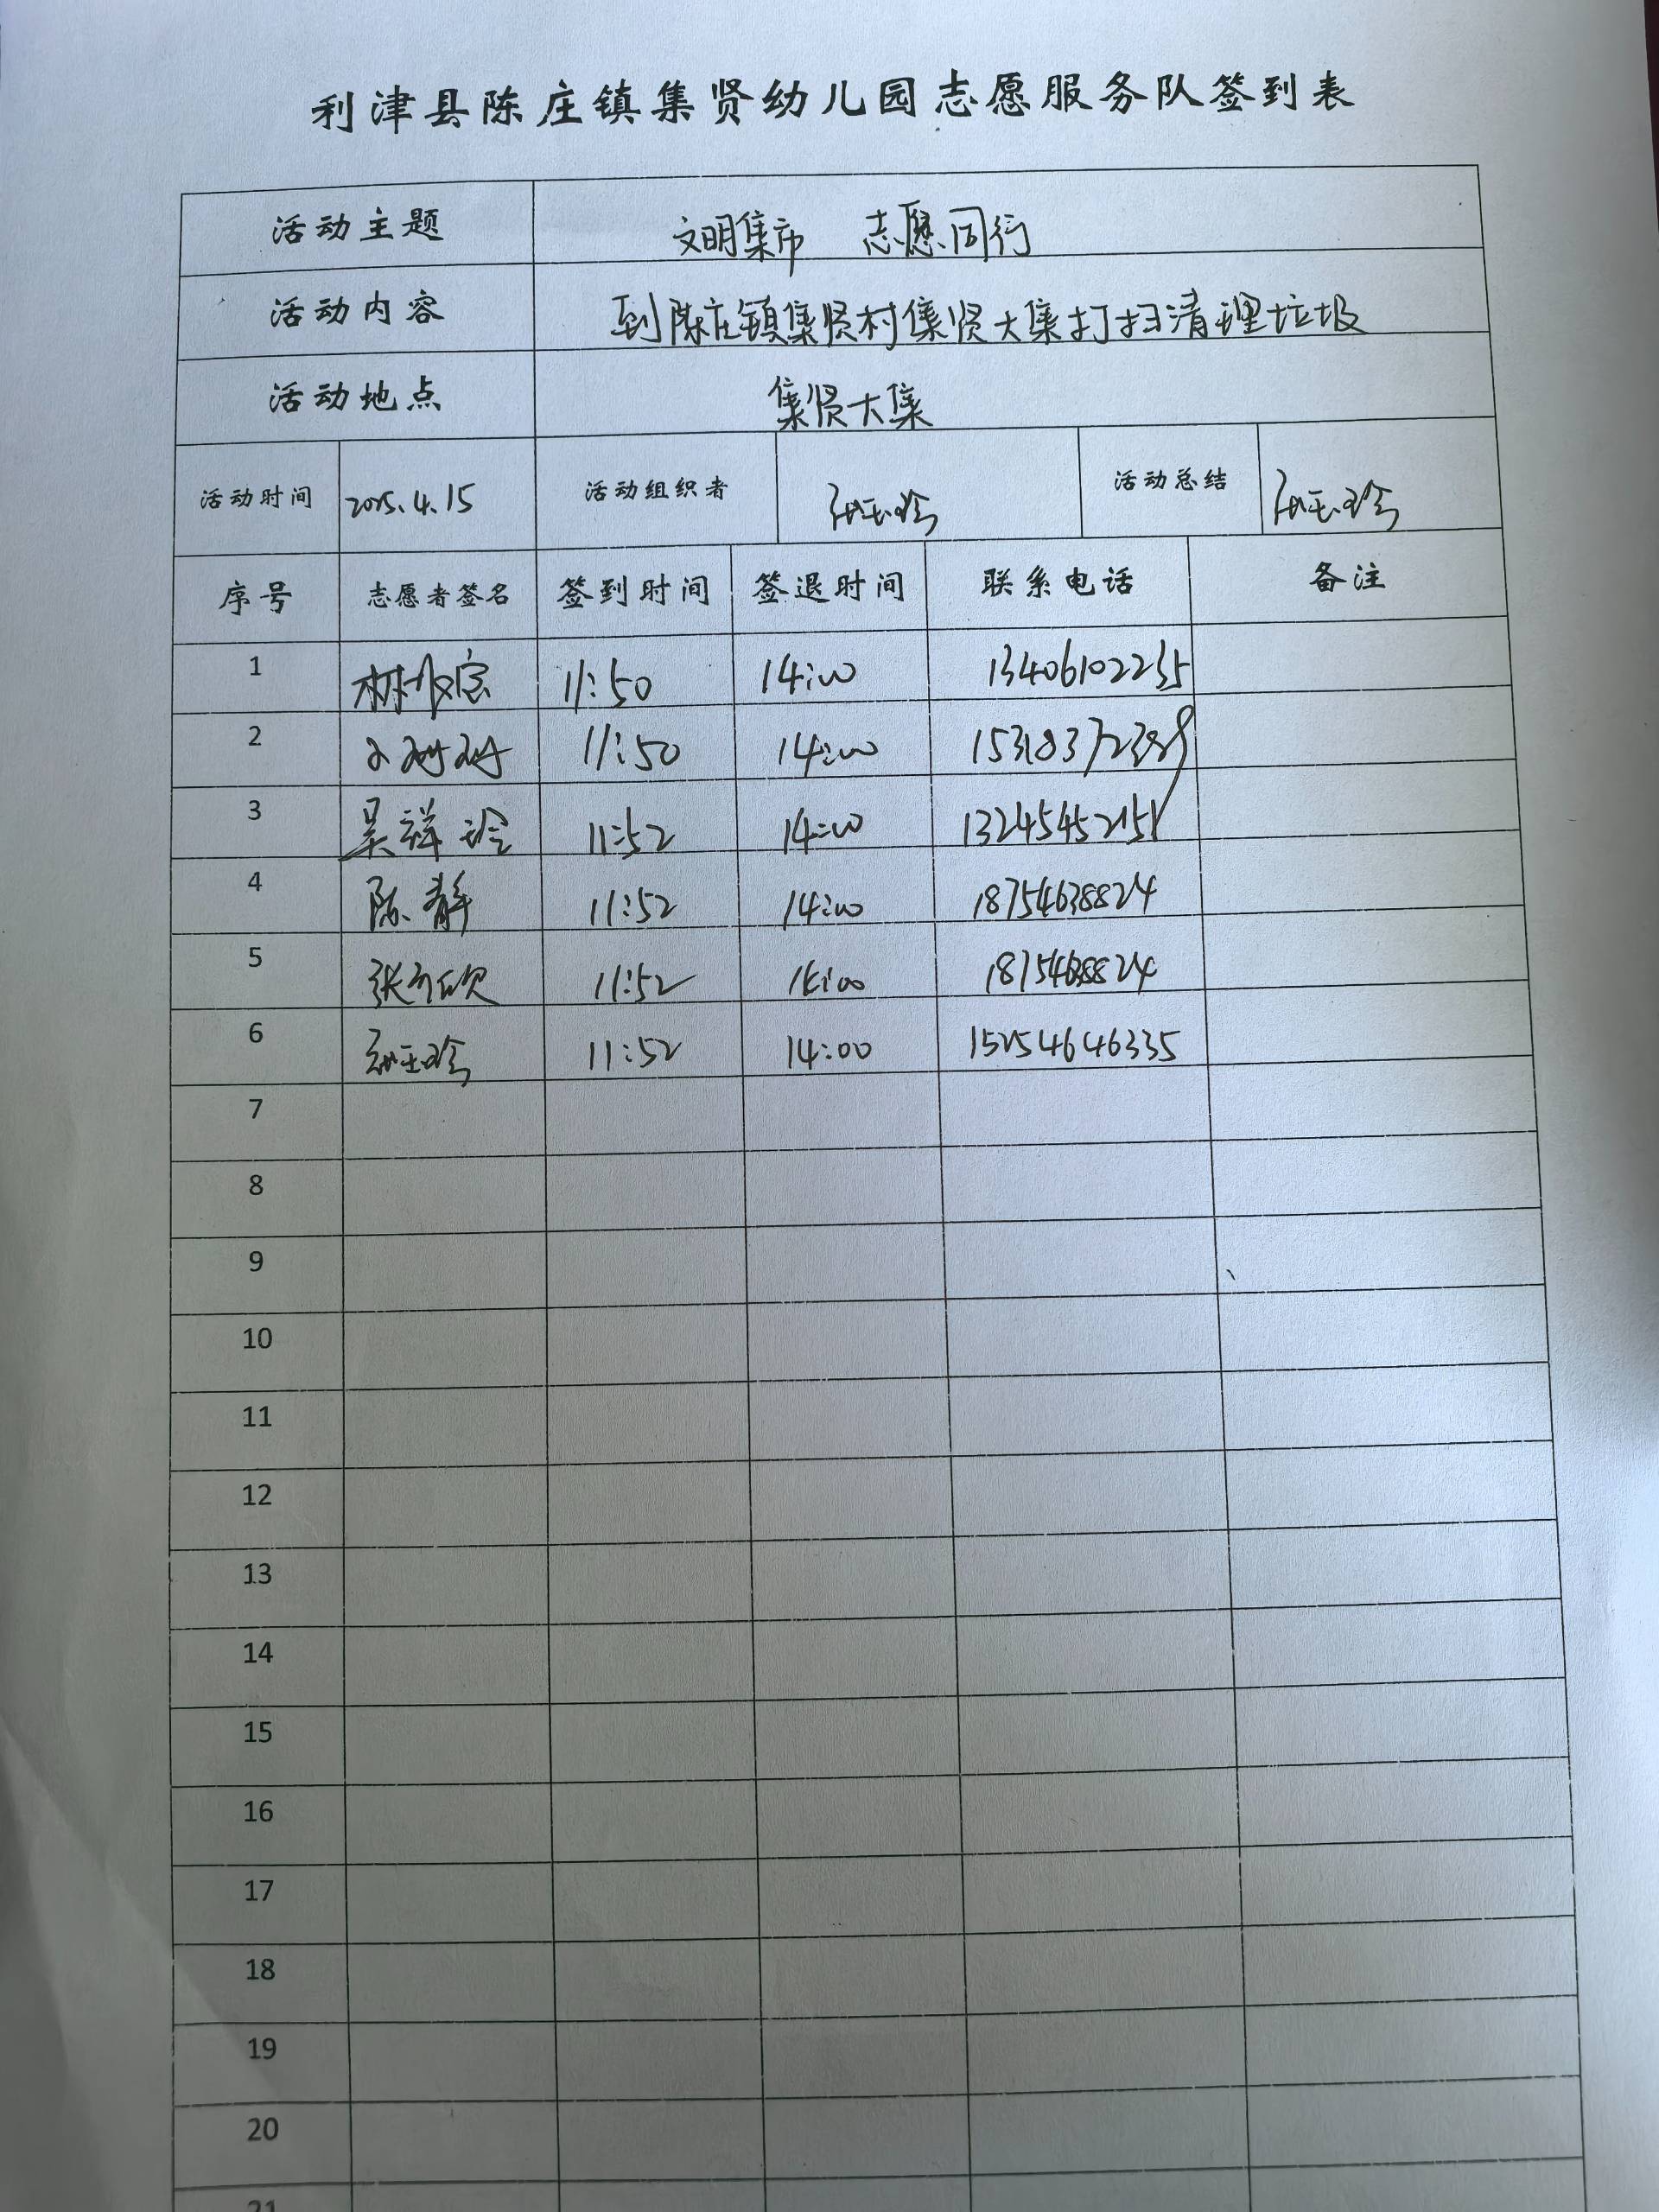 利津县陈庄镇集贤幼儿园志愿服务队签到表
活动主题 文明集市 志愿同行
活动内容 到陈庄镇集贤村集贤大集打扫清理垃圾
活动地点 集贤大集
活动时间 2025.4.15 活动组织者 活动总结
序号 志愿者签名 签到时间 签退时间 联系电话 备注
1 11:50 14:00 13406102235
2 11:50 14:00
3 11:52 14:00
4 陈静 11:52 14:00 18754638824
5 11:52 14:00 18754638824
6 11:52 14:00 15254646335
7
8
9
10
11
12
13
14
15
16
17
18
19
20
21